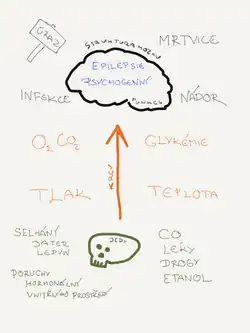 ÚRAZ
STRUKTURA MOZKU
MRTVICE
EPILEPSIE
PSYCHOGENNÍ
INFEKCE
FUNKCE
NÁDOR
O₂ CO₂
GLYKÉMIE
KREV
TLAK
TEPLOTA
SELHÁNÍ
JATER
LEDVIN
JEDY
CO
LÉKY
DROGY
ETANOL
PORUCHY
HORMONÁLNÍ
VNITŘNÍHO PROSTŘEDÍ